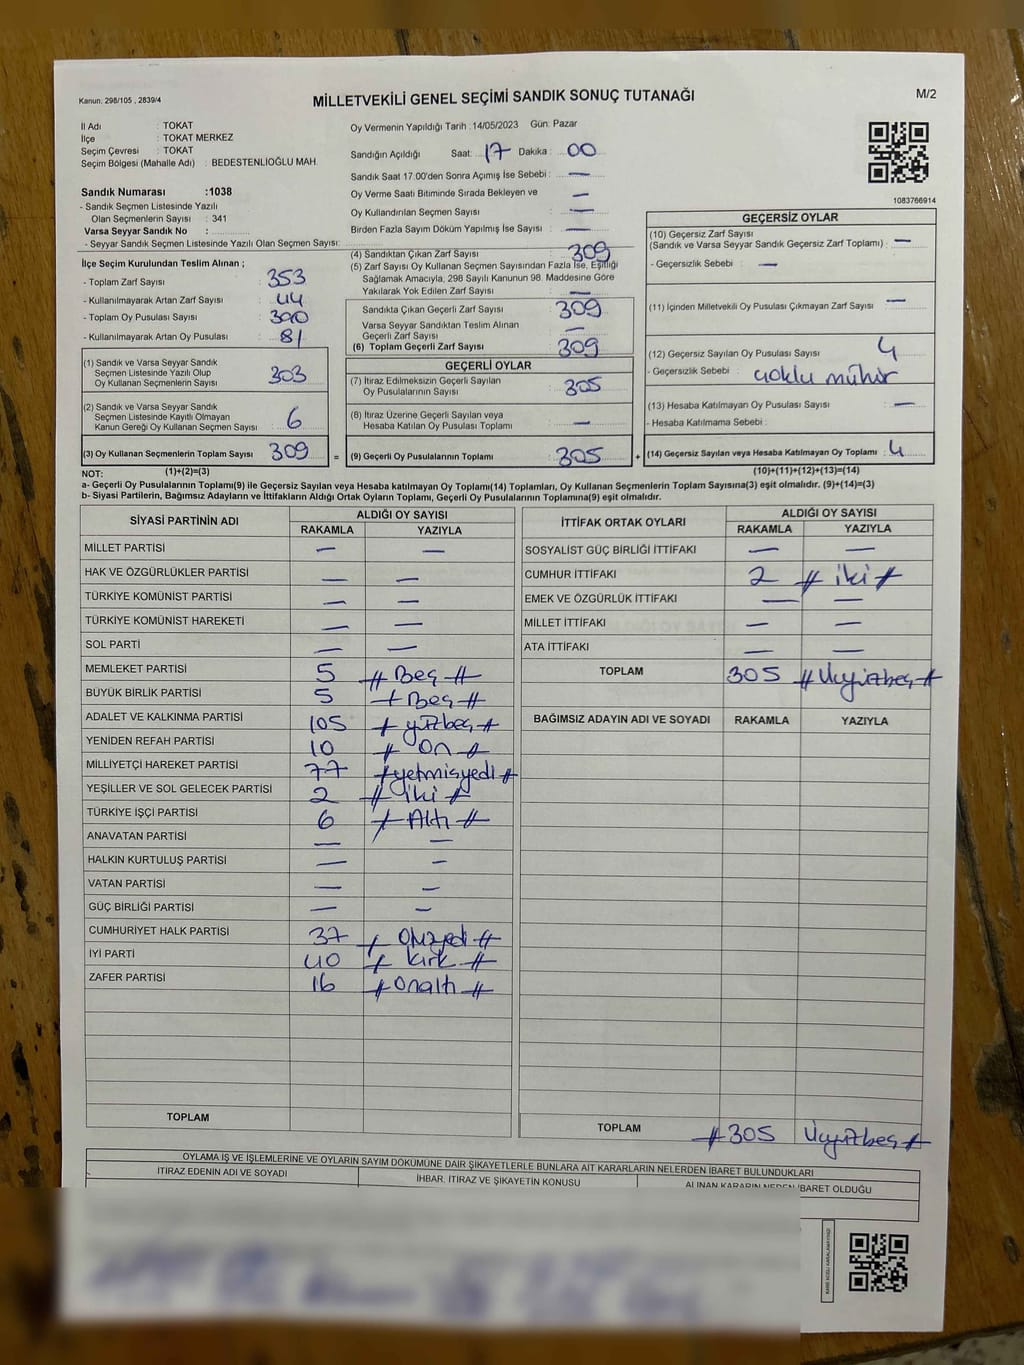 Kanun. 298/105 , 2839/4
MİLLETVEKİLİ GENEL SEÇİMİ SANDIK SONUÇ TUTANAĞI
M/2
İl Adı : TOKAT
İlçe : TOKAT MERKEZ
Seçim Çevresi : TOKAT
Seçim Bölgesi (Mahalle Adı) : BEDESTENLİOĞLU MAH.
Sandık Numarası :1038
- Sandık Seçmen Listesinde Yazılı
Olan Seçmenlerin Sayısı : 341
Varsa Seyyar Sandık No :
- Seyyar Sandık Seçmen Listesinde Yazılı Olan Seçmen Sayısı:
Oy Vermenin Yapıldığı Tarih :14/05/2023 Gün: Pazar
Sandığın Açıldığı Saat: 17 Dakika : 00
Sandık Saat 17.00'den Sonra Açımış İse Sebebi : —
Oy Verme Saati Bitiminde Sırada Bekleyen ve —
Oy Kullandırılan Seçmen Sayısı : —
Birden Fazla Sayım Döküm Yapılmış İse Sayısı : —
1083766914
İlçe Seçim Kurulundan Teslim Alınan ;
- Toplam Zarf Sayısı : 353
- Kullanılmayarak Artan Zarf Sayısı : 44
- Toplam Oy Pusulası Sayısı : 390
- Kullanılmayarak Artan Oy Pusulası : 81
(1) Sandık ve Varsa Seyyar Sandık
Seçmen Listesinde Yazılı Olup
Oy Kullanan Seçmenlerin Sayısı : 303
(2) Sandık ve Varsa Seyyar Sandık
Seçmen Listesinde Kayıtlı Olmayan
Kanun Gereği Oy Kullanan Seçmen Sayısı : 6
(3) Oy Kullanan Seçmenlerin Toplam Sayısı : 309 =
(4) Sandıktan Çıkan Zarf Sayısı : 309
(5) Zarf Sayısı Oy Kullanan Seçmen Sayısından Fazla İse, Eşitliği
Sağlamak Amacıyla, 298 Sayılı Kanunun 98. Maddesine Göre
Yakılarak Yok Edilen Zarf Sayısı : —
Sandıkta Çıkan Geçerli Zarf Sayısı : 309
Varsa Seyyar Sandıktan Teslim Alınan
Geçerli Zarf Sayısı : —
(6) Toplam Geçerli Zarf Sayısı : 309
GEÇERLİ OYLAR
(7) İtiraz Edilmeksizin Geçerli Sayılan
Oy Pusulalarının Sayısı : 305
(8) İtiraz Üzerine Geçerli Sayılan veya
Hesaba Katılan Oy Pusulası Toplamı : —
(9) Geçerli Oy Pusulalarının Toplamı : 305 +
GEÇERSİZ OYLAR
(10) Geçersiz Zarf Sayısı
(Sandık ve Varsa Seyyar Sandık Geçersiz Zarf Toplamı) : —
- Geçersizlik Sebebi : —
(11) İçinden Milletvekili Oy Pusulası Çıkmayan Zarf Sayısı : —
(12) Geçersiz Sayılan Oy Pusulası Sayısı : 4
- Geçersizlik Sebebi : çoklu mühür
(13) Hesaba Katılmayan Oy Pusulası Sayısı : —
- Hesaba Katılmama Sebebi :
(14) Geçersiz Sayılan veya Hesaba Katılmayan Oy Toplamı : 4
NOT: (1)+(2)=(3) (10)+(11)+(12)+(13)=(14)
a- Geçerli Oy Pusulalarının Toplamı(9) ile Geçersiz Sayılan veya Hesaba katılmayan Oy Toplamı(14) Toplamları, Oy Kullanan Seçmenlerin Toplam Sayısına(3) eşit olmalıdır. (9)+(14)=(3)
b- Siyasi Partilerin, Bağımsız Adayların ve İttifakların Aldığı Ortak Oyların Toplamı, Geçerli Oy Pusulalarının Toplamına(9) eşit olmalıdır.
SİYASİ PARTİNİN ADI ALDIĞI OY SAYISI
RAKAMLA YAZIYLA
MİLLET PARTİSİ — —
HAK VE ÖZGÜRLÜKLER PARTİSİ — —
TÜRKİYE KOMÜNİST PARTİSİ — —
TÜRKİYE KOMÜNİST HAREKETİ — —
SOL PARTİ — —
MEMLEKET PARTİSİ 5 # Beş #
BÜYÜK BİRLİK PARTİSİ 5 # Beş #
ADALET VE KALKINMA PARTİSİ 105 # yüzbeş #
YENİDEN REFAH PARTİSİ 10 # On #
MİLLİYETÇİ HAREKET PARTİSİ 77 # yetmişyedi #
YEŞİLLER VE SOL GELECEK PARTİSİ 2 # iki #
TÜRKİYE İŞÇİ PARTİSİ 6 # Altı #
ANAVATAN PARTİSİ — —
HALKIN KURTULUŞ PARTİSİ — —
VATAN PARTİSİ — —
GÜÇ BİRLİĞİ PARTİSİ — —
CUMHURİYET HALK PARTİSİ 37 # Otuzyedi #
İYİ PARTİ 40 # Kırk #
ZAFER PARTİSİ 16 # Onaltı #
TOPLAM
İTTİFAK ORTAK OYLARI ALDIĞI OY SAYISI
RAKAMLA YAZIYLA
SOSYALİST GÜÇ BİRLİĞİ İTTİFAKI — —
CUMHUR İTTİFAKI 2 # iki #
EMEK VE ÖZGÜRLÜK İTTİFAKI — —
MİLLET İTTİFAKI — —
ATA İTTİFAKI — —
TOPLAM 305 # Üçyüzbeş #
BAĞIMSIZ ADAYIN ADI VE SOYADI RAKAMLA YAZIYLA
TOPLAM # 305 Üçyüzbeş #
OYLAMA İŞ VE İŞLEMLERİNE VE OYLARIN SAYIM DÖKÜMÜNE DAİR ŞİKAYETLERLE BUNLARA AİT KARARLARIN NELERDEN İBARET BULUNDUKLARI
İTİRAZ EDENİN ADI VE SOYADI İHBAR, İTİRAZ VE ŞİKAYETİN KONUSU ALINAN KARARIN NEDEN İBARET OLDUĞU